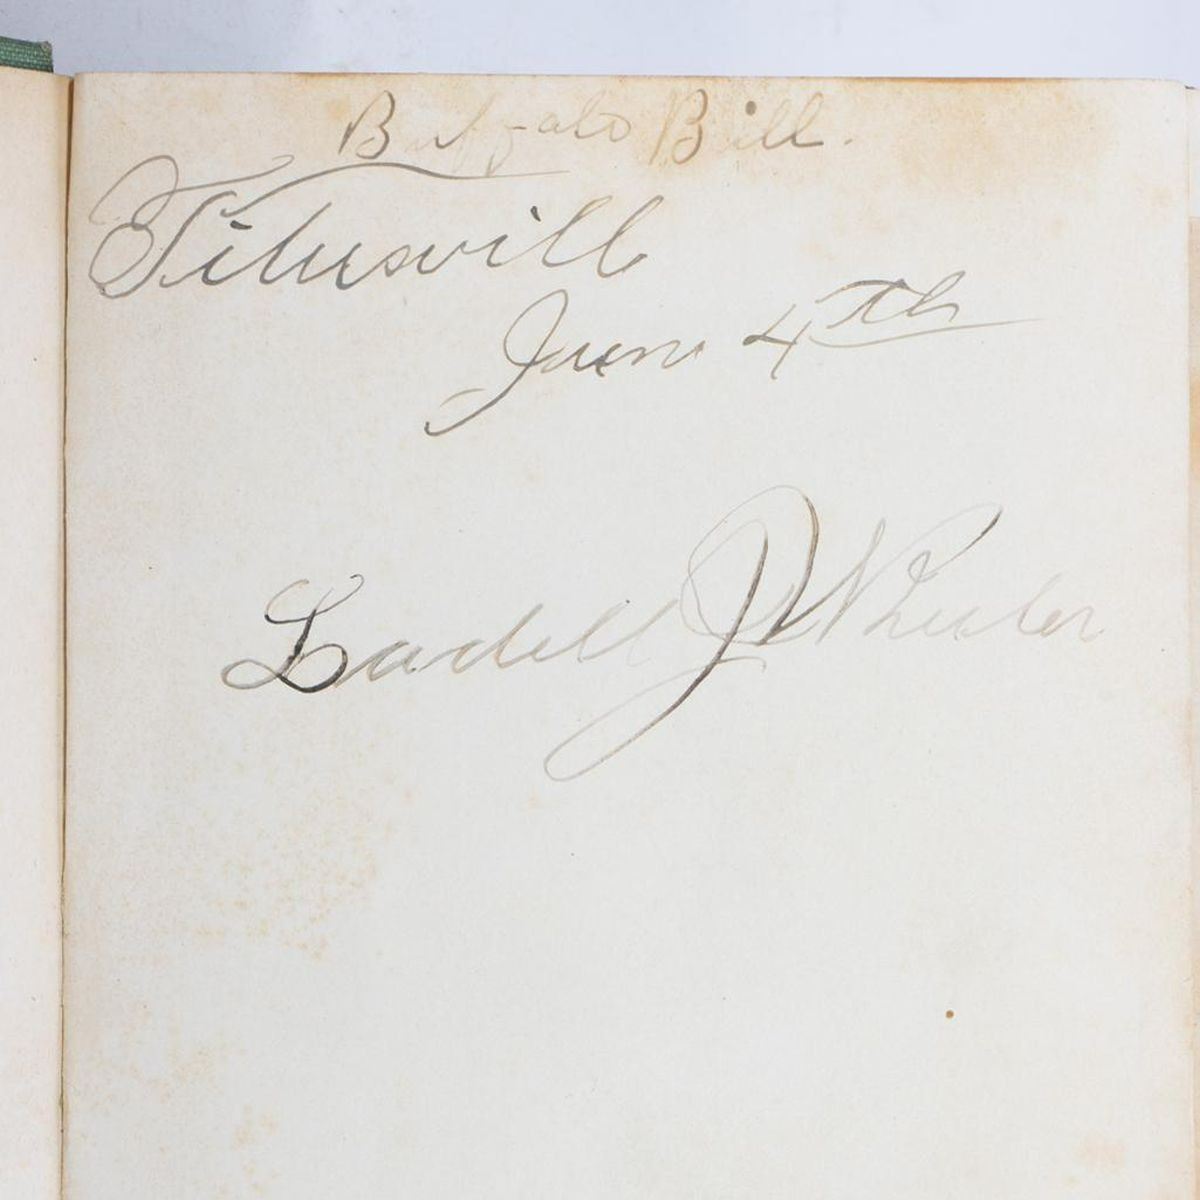 Buffalo Bill.
Titusvill
June 4th
Ladell J Wheeler